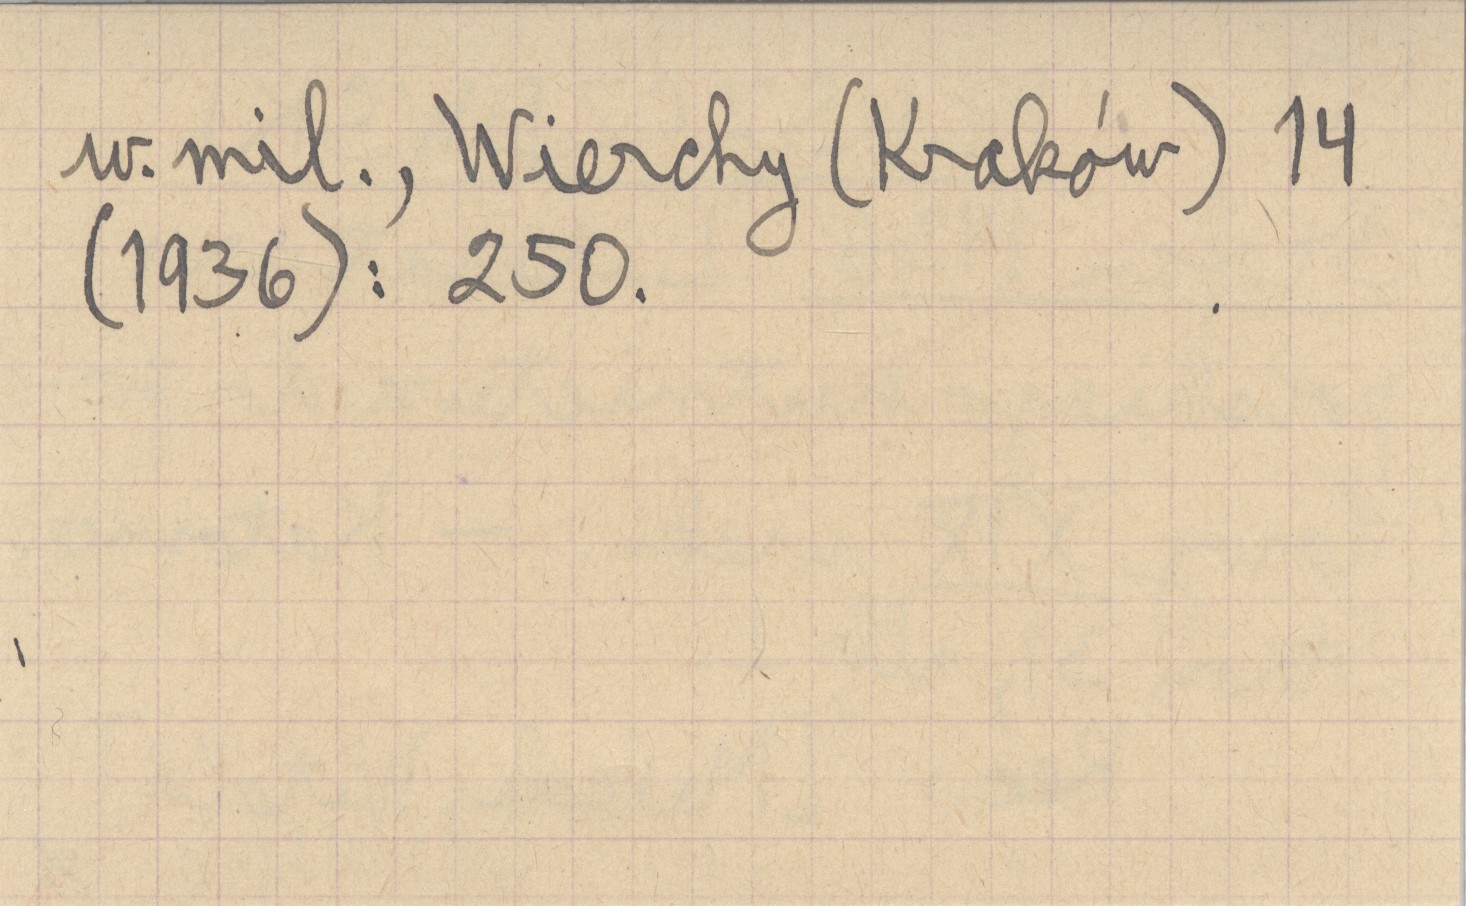 w. mil., Wierchy (Kraków) 14
(1936): 250.